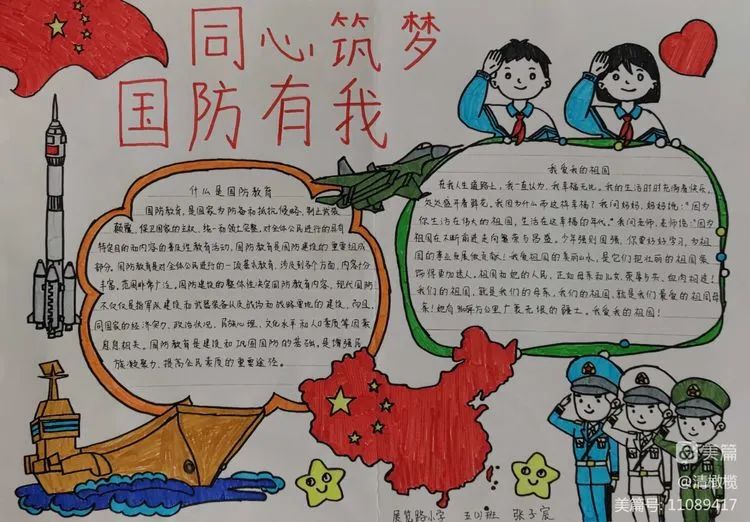 同心筑梦
国防有我
什么是国防教育
国防教育,是国家为防备和抵抗侵略,制止武装
颠覆,保卫国家的主权、统一和领土完整,对全体公民进行的具有
特定目的和内容的普及性教育活动。国防教育是国防建设的重要组成
部分。国防教育是对全体公民进行的一项基本教育,涉及到各个方面,内容十分
丰富,范围非常广泛。国防建设的整体性决定国防教育内容,现代国防
不仅仅是指军队建设和武器装备以及战场和战略要地的建设,而且
同国家的经济实力、政治状况、民族心理、文化水平和人口素质等因素
息息相关。国防教育是建设和巩固国防的基础,是增强民
族凝聚力、提高公民素质的重要途径。
我爱我的祖国
在我人生道路上,我一直认为,我幸福无比。我的生活时时充满着快乐,
处处盛开着鲜花。我因为什么而这样幸福?我问妈妈,妈妈说:“因为
你生活在伟大的祖国,生活在这幸福的年代。”我问老师,老师说:“因为
祖国在不断前进走向繁荣与昌盛。少年强则国强,你要好好学习,为祖
国的事业发展做贡献!我爱祖国的青山绿水,是它们把壮丽的祖国装
饰得更加迷人,祖国和她的人民,正如母亲和儿女,气息与共,血肉相连!
我们的祖国,就是我们的母亲,我们的祖国,就是我们最爱的祖国母
亲!她有960万平方公里广袤无垠的疆土。我爱我的祖国!
展览路小学 五(1)班 张子宸
美篇
@清橄榄
美篇号: 11089417